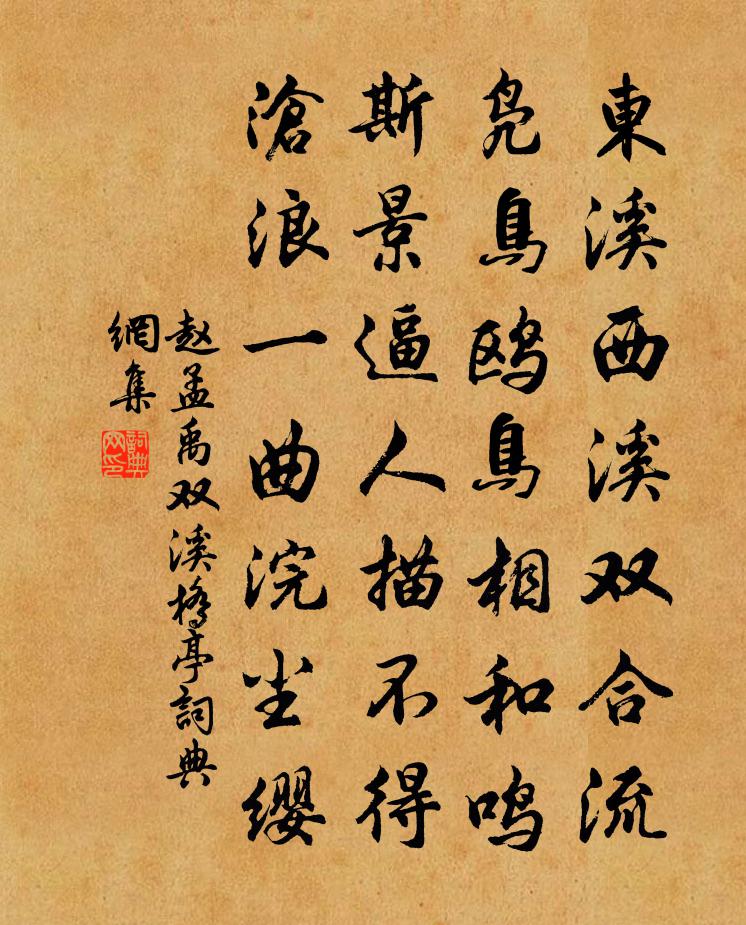 東溪西溪双合流
凫鳥鸥鳥相和鸣
斯景逼人描不得
滄浪一曲浣尘缨
赵孟禹双溪橋亭詞典
網集
詞典
网印